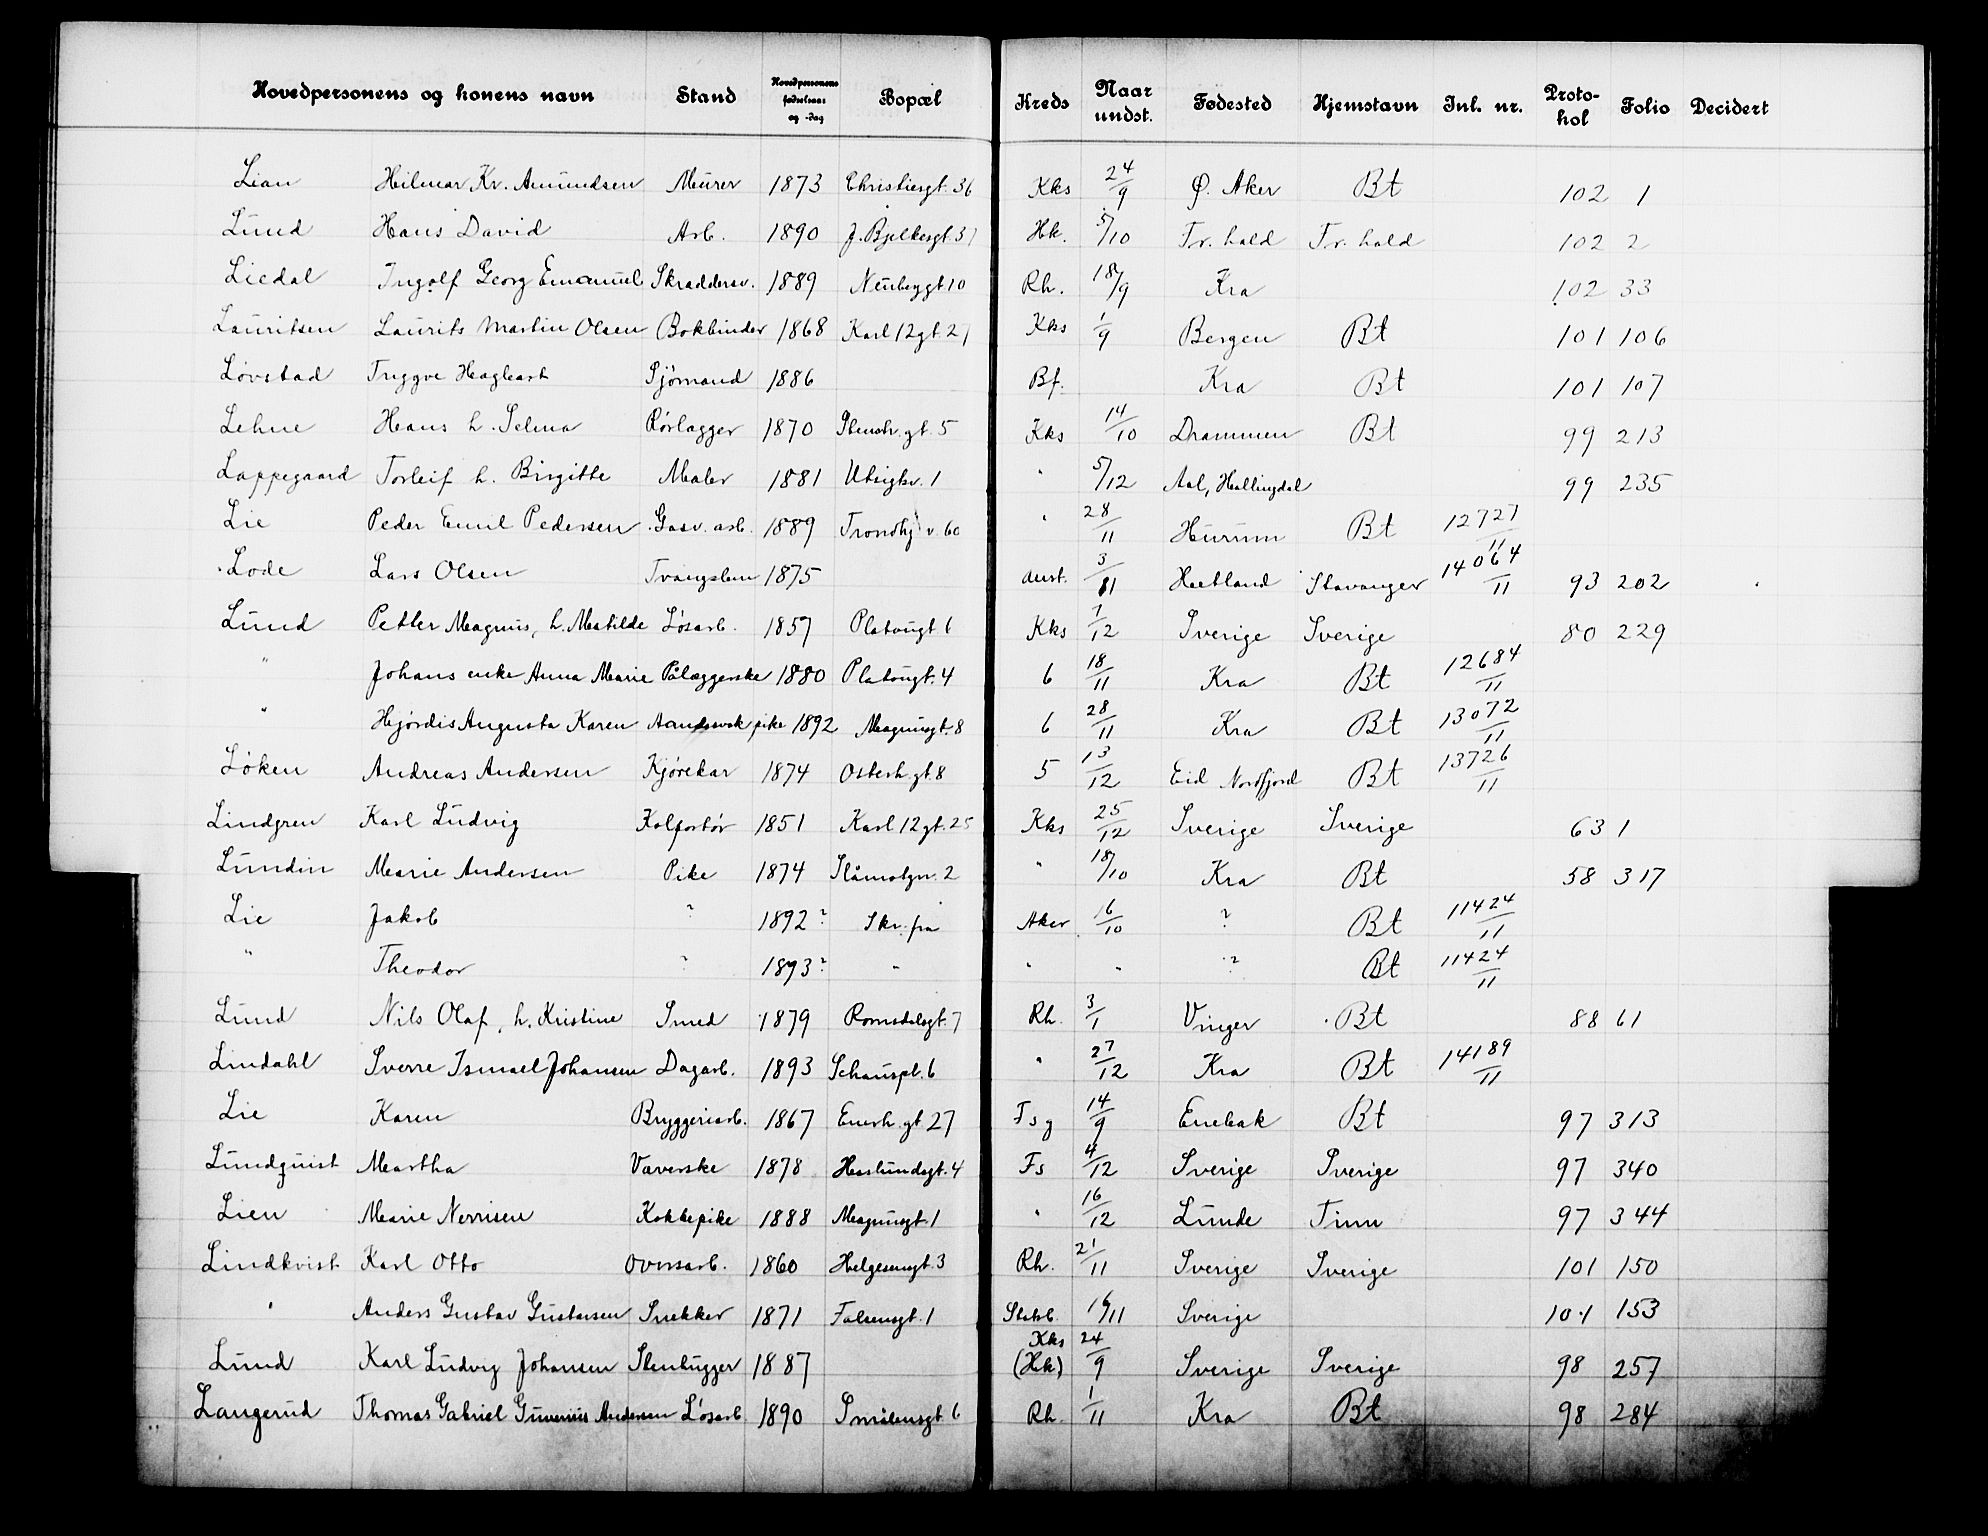 Hovedpersonens og konens navn Stand Hovedpersonens fødselsaar og -dag Bopæl Kreds Naar undst. Fødested Hjemstavn Inl. nr. Proto-kol Folio Decidert
Lian Hilmar Kr. Amundsen Murer 1873 Christiesgt. 36 Kks 24/9 Ø. Aker Bt 102 1
Lund Hans David Arb. 1890 J. Bjelkesgt. 31 Hk. 5/10 Fr. hald Fr. hald 102 2
Liedal Ingolf Georg Emanuel Skraddersv. 1889 Neubeggt 10 Rh. 18/9 Kra 102 33
Lauritsen Laurits Martin Olsen Bokbinder 1868 Karl 12gt. 21 Kks 1/9 Bergen Bt 101 106
Løvstad Tryggve Hagbart Sjømand 1886 Bf. Kra Bt 101 107
Lehne Hans h. Selma Rørlægger 1870 Stenstr. gt. 5 Kks 14/10 Drammen Bt 99 213
Lappegaard Torleif h. Birgitte Maler 1881 Utsigtsv. 1 " 5/12 Aal, Hallingdal 99 235
Lie Peder Emil Pedersen Gasv. arb. 1889 Trondhj v. 60 " 28/11 Hurum Bt 12727/11
Lode Lars Olsen Tvangslem 1875 anst. 3/11 Hetland Stavanger 14064/11 93 202
Lund Petter Magnus, h. Matilde Løsarb. 1857 Platougt 6 Kks 7/12 Sverige Sverige 80 229
" Johans enke Anna Marie Pålæggerske 1880 Platougt. 4 6 18/11 Kra Bt 12684/11
" Hjørdis Augusta Karen Aandssvak pike 1892 Magnusgt. 8 6 28/11 Kra Bt 13072/11
Løken Andreas Andersen Kjørekar 1874 Osterh. gt. 8 5 13/12 Eid Nordfjord Bt 13726/11
Lindgren Karl Ludvig Kolportør 1851 Karl 12gt. 25 Kks 25/12 Sverige Sverige 63 1
Lundin Marie Andersen Pike 1874 Slåmotgn. 2 " 18/10 Kra Bt 58 317
Lie Jakob ? 1892? Skr. fra Aker 16/10 ? Bt 11424/11
" Theodor ? 1893? " " " ? Bt 11424/11
Lund Nils Olaf, h. Kristine Smed 1879 Romsdalsgt. 7 Rh. 3/1 Vinger Bt 88 61
Lindahl Sverre Ismael Johansen Dagarb. 1893 Schouspl. 6 " 27/12 Kra Bt 14189/11
Lie Karen Bryggeriarb. 1867 Enerh. gt 27 Fsg 14/9 Enebak Bt 97 313
Lundquist Martha Væverske 1878 Haslundsgt. 4 Fs 4/12 Sverige Sverige 97 340
Lien Marie Nerrisen Kokkepike 1888 Magnusgt. 1 " 16/12 Lunde Tinn 97 344
Lindkvist Karl Otto Oversarb. 1860 Helgesensgt. 3 Rh. 21/11 Sverige Sverige 101 150
" Anders Gustav Gustavsen Snekker 1871 Falsensgt. 1 Statsb. 16/11 Sverige 101 153
Lund Karl Ludvig Johansen Stenhugger 1887 Kks (Hk) 24/9 Sverige Sverige 98 257
Langerud Thomas Gabriel Gunerius Andersen Løsarb. 1890 Smålensgt 6 Rh. 1/11 Kra Bt 98 284